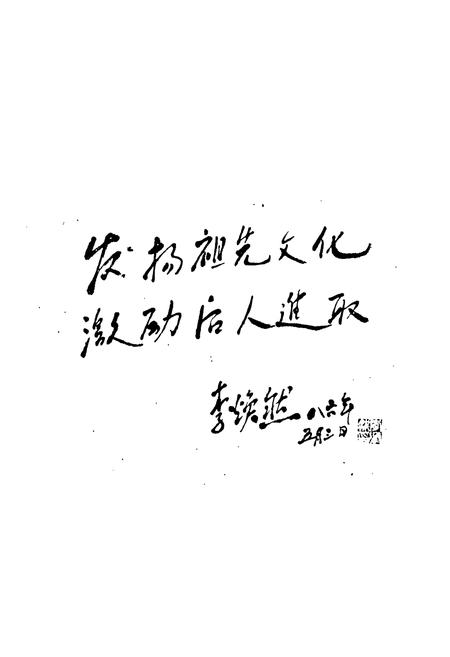 发扬祖先文化
激励后人進取
李焕然 八六年
五月三日